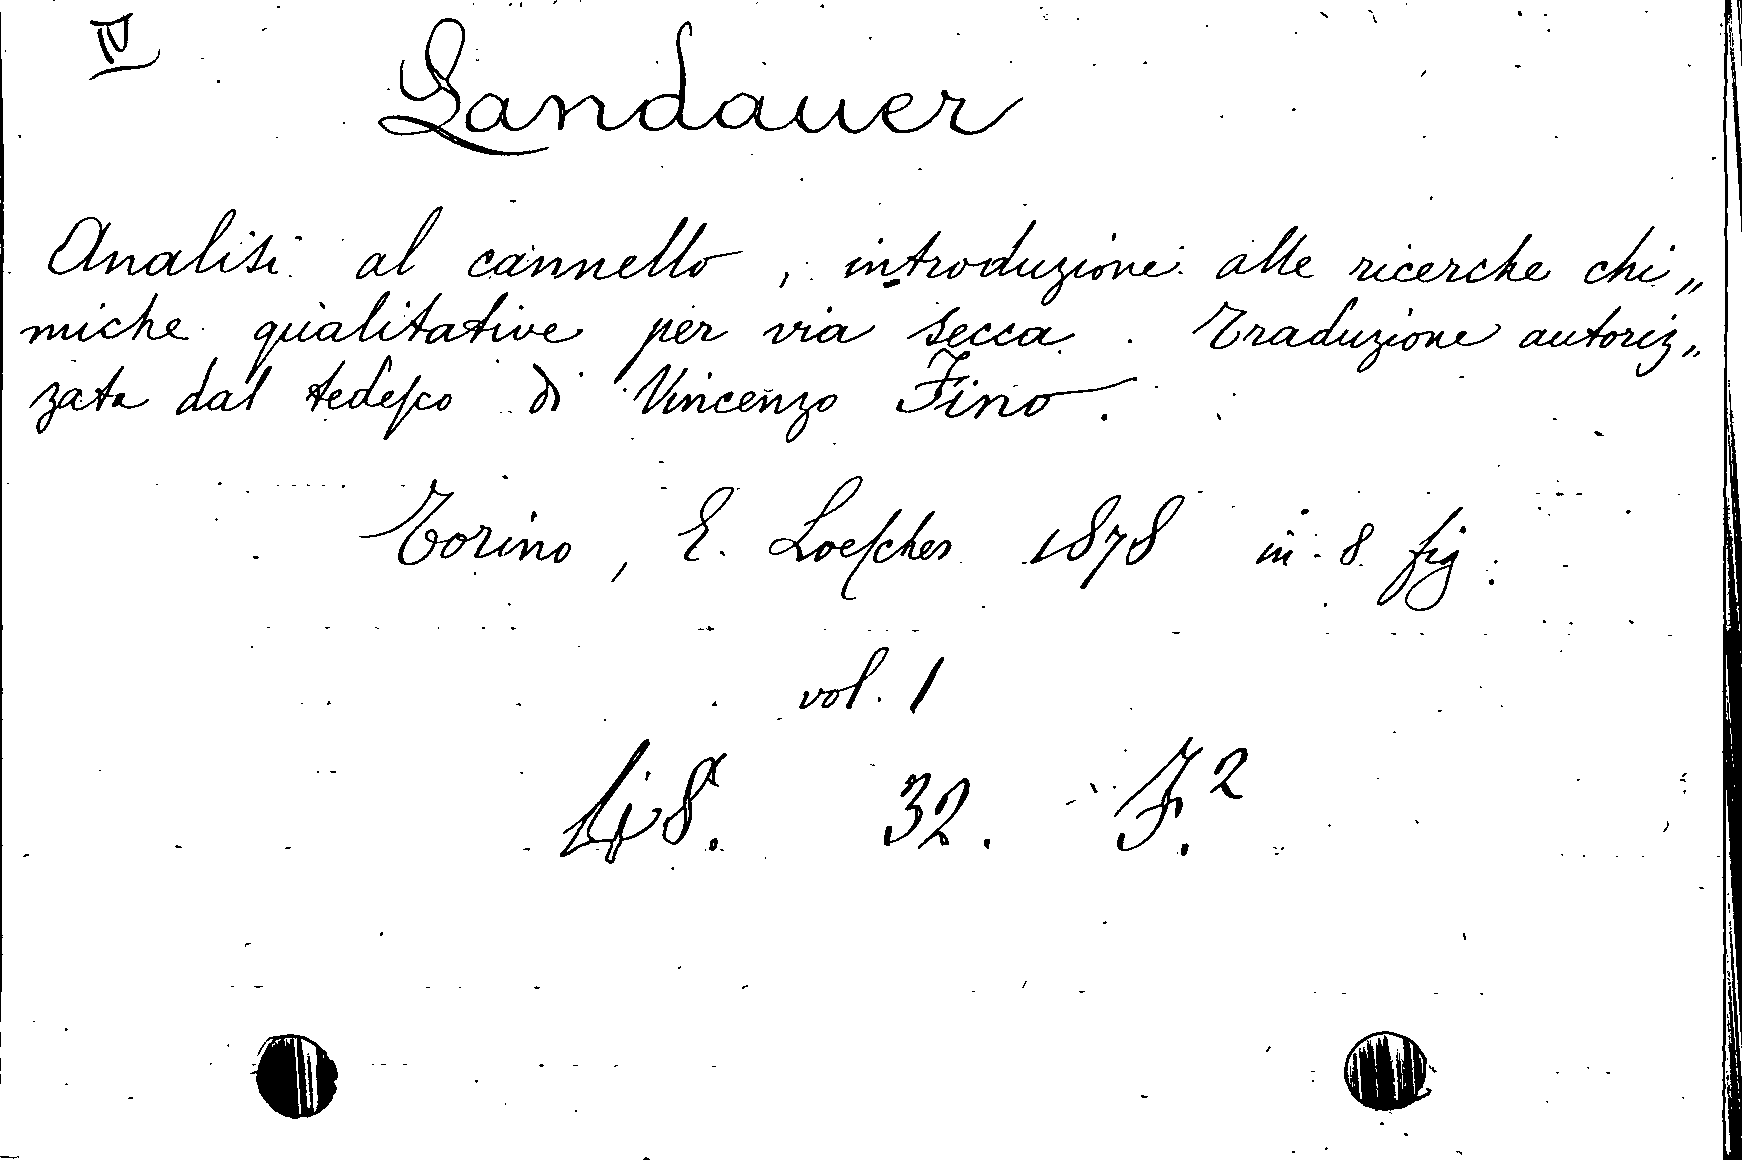 IV
Landauer
Analisi al cannello, introduzione alle ricerche chi„
miche qualitative per via secca. Traduzione autoriz„
zata dal tedesco di Vincenzo Fino.
Torino, E. Loescher 1878 in 8 fig.
vol. 1
48. 32. F.2